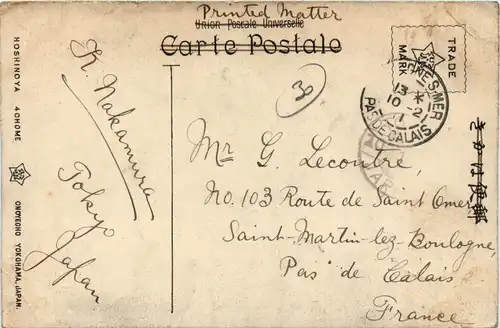 Printed Matter
Union Postale Universelle
Carte Postale
TRADE
MARK
HOSHINOYA 4CHOME
ONOYECHO YOKOHAMA, JAPAN.
K. Nakamura
Tokyo
Japan
30
NE S-MER
13 *
10 - 2
11
PAS DE CALAIS
Mr G. Lecoutre,
No. 103 Route de Saint Omer
Saint-Martin-lez-Boulogne,
Pas de Calais
France
きかは便郵